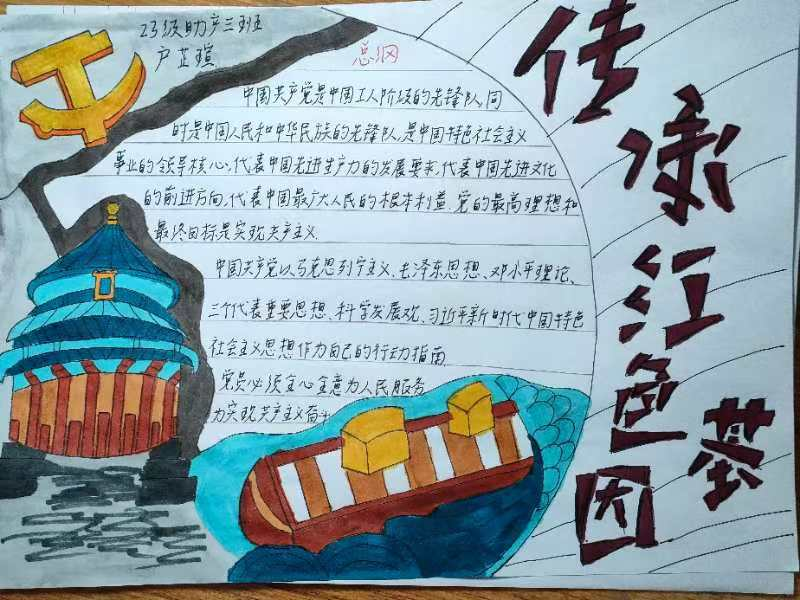 23级助产三班
卢芷瑄
总纲
中国共产党是中国工人阶级的先锋队,同
时是中国人民和中华民族的先锋队,是中国特色社会主义
事业的领导核心,代表中国先进生产力的发展要求,代表中国先进文化
的前进方向,代表中国最广大人民的根本利益.党的最高理想和
最终目标是实现共产主义.
中国共产党以马克思列宁主义、毛泽东思想、邓小平理论、
三个代表重要思想、科学发展观、习近平新时代中国特色
社会主义思想作为自己的行动指南.
党员必须全心全意为人民服务
为实现共产主义奋
传承红色基因